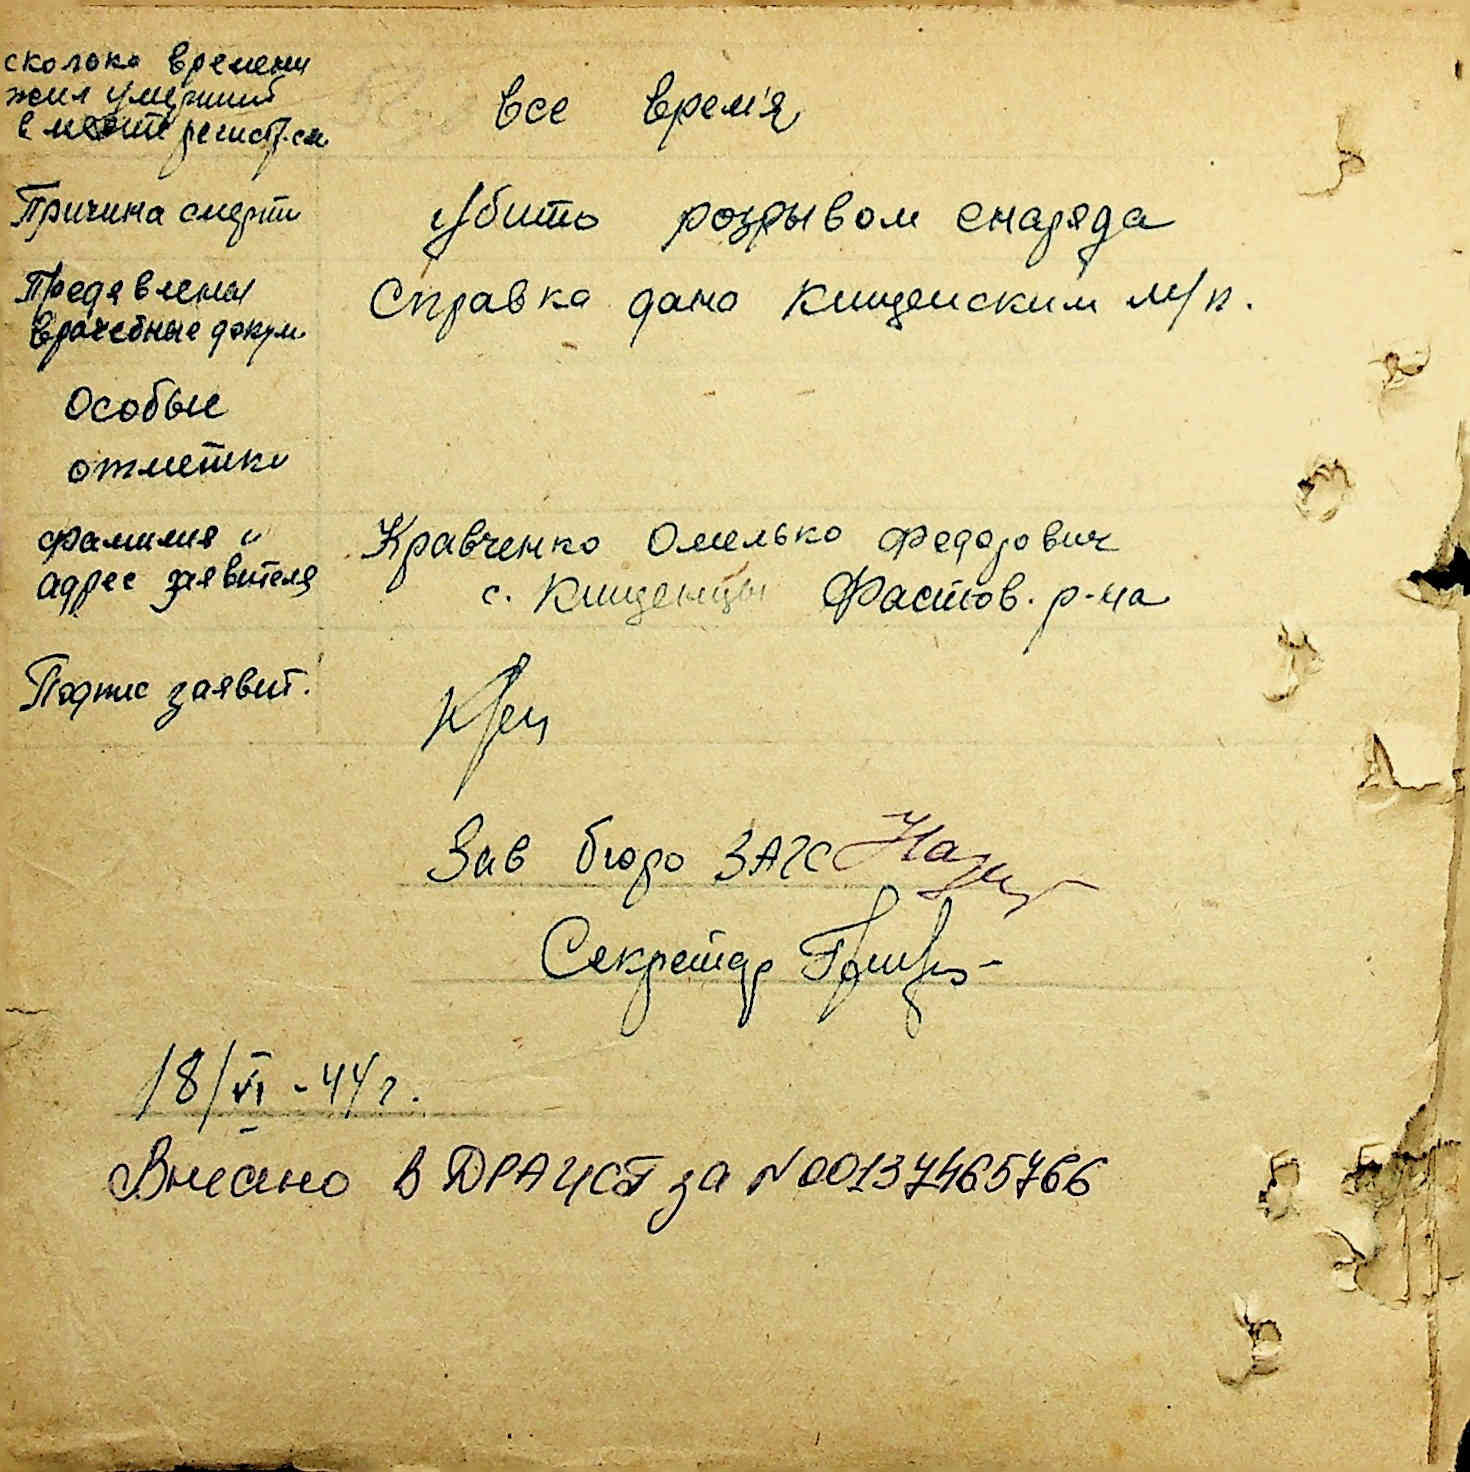 сколько времени
жил умерший
в месте регистр.см.
все время
Причина смерти
Убито розрывом снаряда
Предявлены
врачебные докум.
Справка дана Кищенским м/п.
Особые
отметки
Фамилия и
адрес заявителя
Кравченко Омелько Федорович
с. Кищенцы Фастов. р-на
Подпис заявит.
Зав бюро ЗАГС
Секретар
18/VI -44 г.
Внесено в ДРАЦСГ за №00137465766